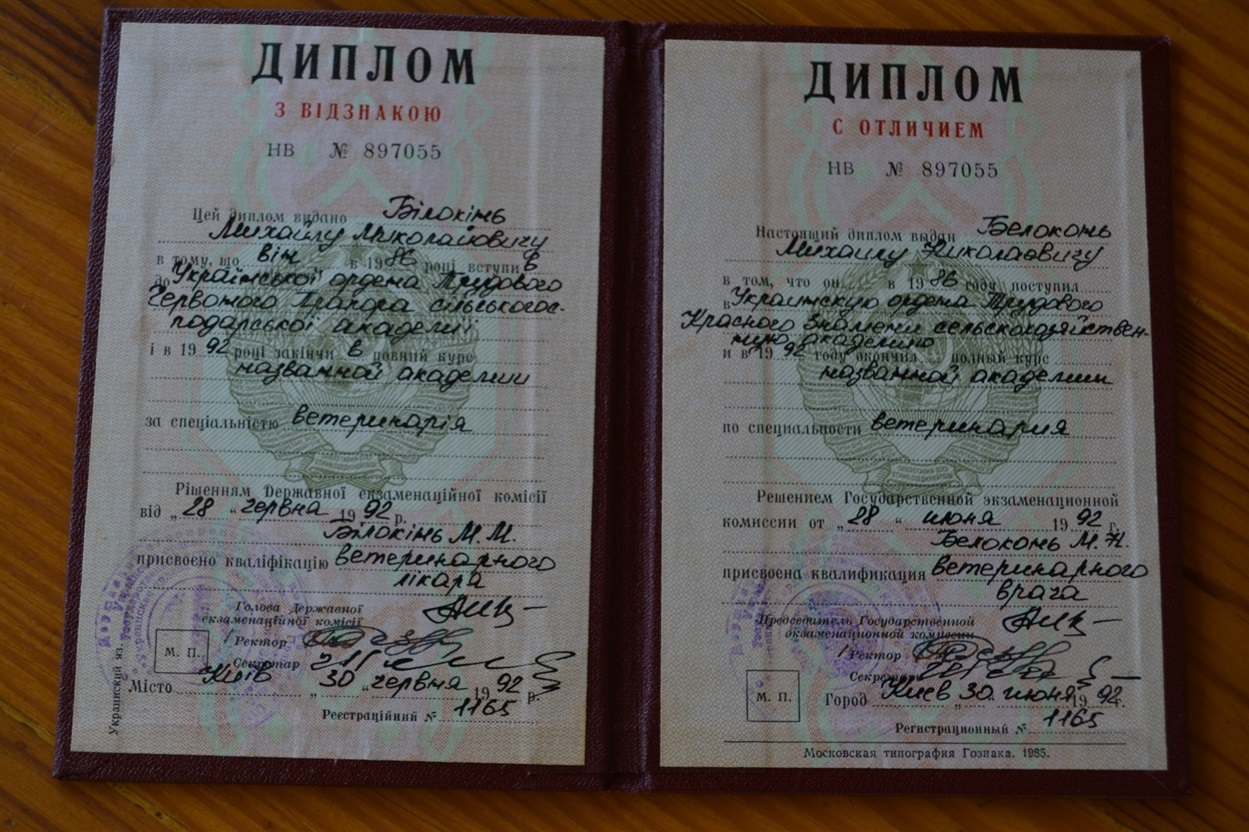 ДИПЛОМ
З ВІДЗНАКОЮ
НВ № 897055
Цей диплом видано Білокінь
Михайлу Миколайовичу
в тому, що він в 1986 році вступив
до Української ордена Трудового
Червоного Прапора сільськогос-
подарської академії
і в 1992 році закінчив повний курс
названной академии
за спеціальністю ветеринарія
Рішенням Державної екзаменаційної комісії
від „28“ червня 1992 р.
Білокінь М.М.
присвоєно кваліфікацію ветеринарного
лікаря
Голова Державної
екзаменаційної комісії
Ректор
Секретар
М. П.
Місто Київ „30“ червня 1992 р.
Реєстраційний № 1165
Украинский яз.
ДИПЛОМ
С ОТЛИЧИЕМ
НВ № 897055
Настоящий диплом выдан Белоконь
Михаилу Николаевичу
в том, что он в 1986 году поступил
в Украинскую ордена Трудового
Красного Знамени сельскохозяйствен-
ную академию
и в 1992 году окончил полный курс
названной академии
по специальности ветеринария
Решением Государственной экзаменационной
комиссии от „28“ июня 1992 г.
Белоконь М.Н.
присвоена квалификация ветеринарного
врача
Председатель Государственной
экзаменационной комиссии
Ректор
Секретарь
М. П.
Город Киев 30 июня 1992 г.
Регистрационный № 1165
Московская типография Гознака. 1985.